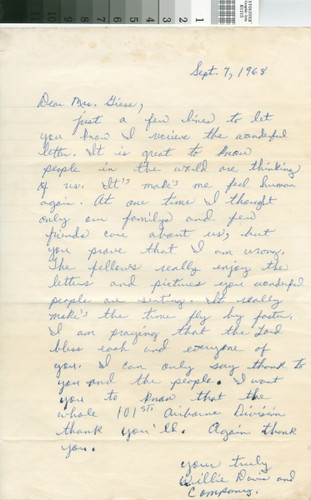 Sept. 7, 1968
Dear Mrs. Giese,
Just a few lines to let
you know I recieve the wonderful
letter. It is great to know
people in the world are thinking
of us. It's make's me feel human
again. At one time I thought
only our family and few
friends care about us, but
you prove that I am wrong.
The fellows really enjoy the
letters and pictures you wonderful
people are senting. It really
make's the time fly by faster.
I am praying that the Lord
bless each and everyone of
you. I can only say thank to
you and the people. I want
you to know that the
whole 101ST Airborne Division
thank you'll. Again thank
you.
your truly
Willie Davis and
Company.